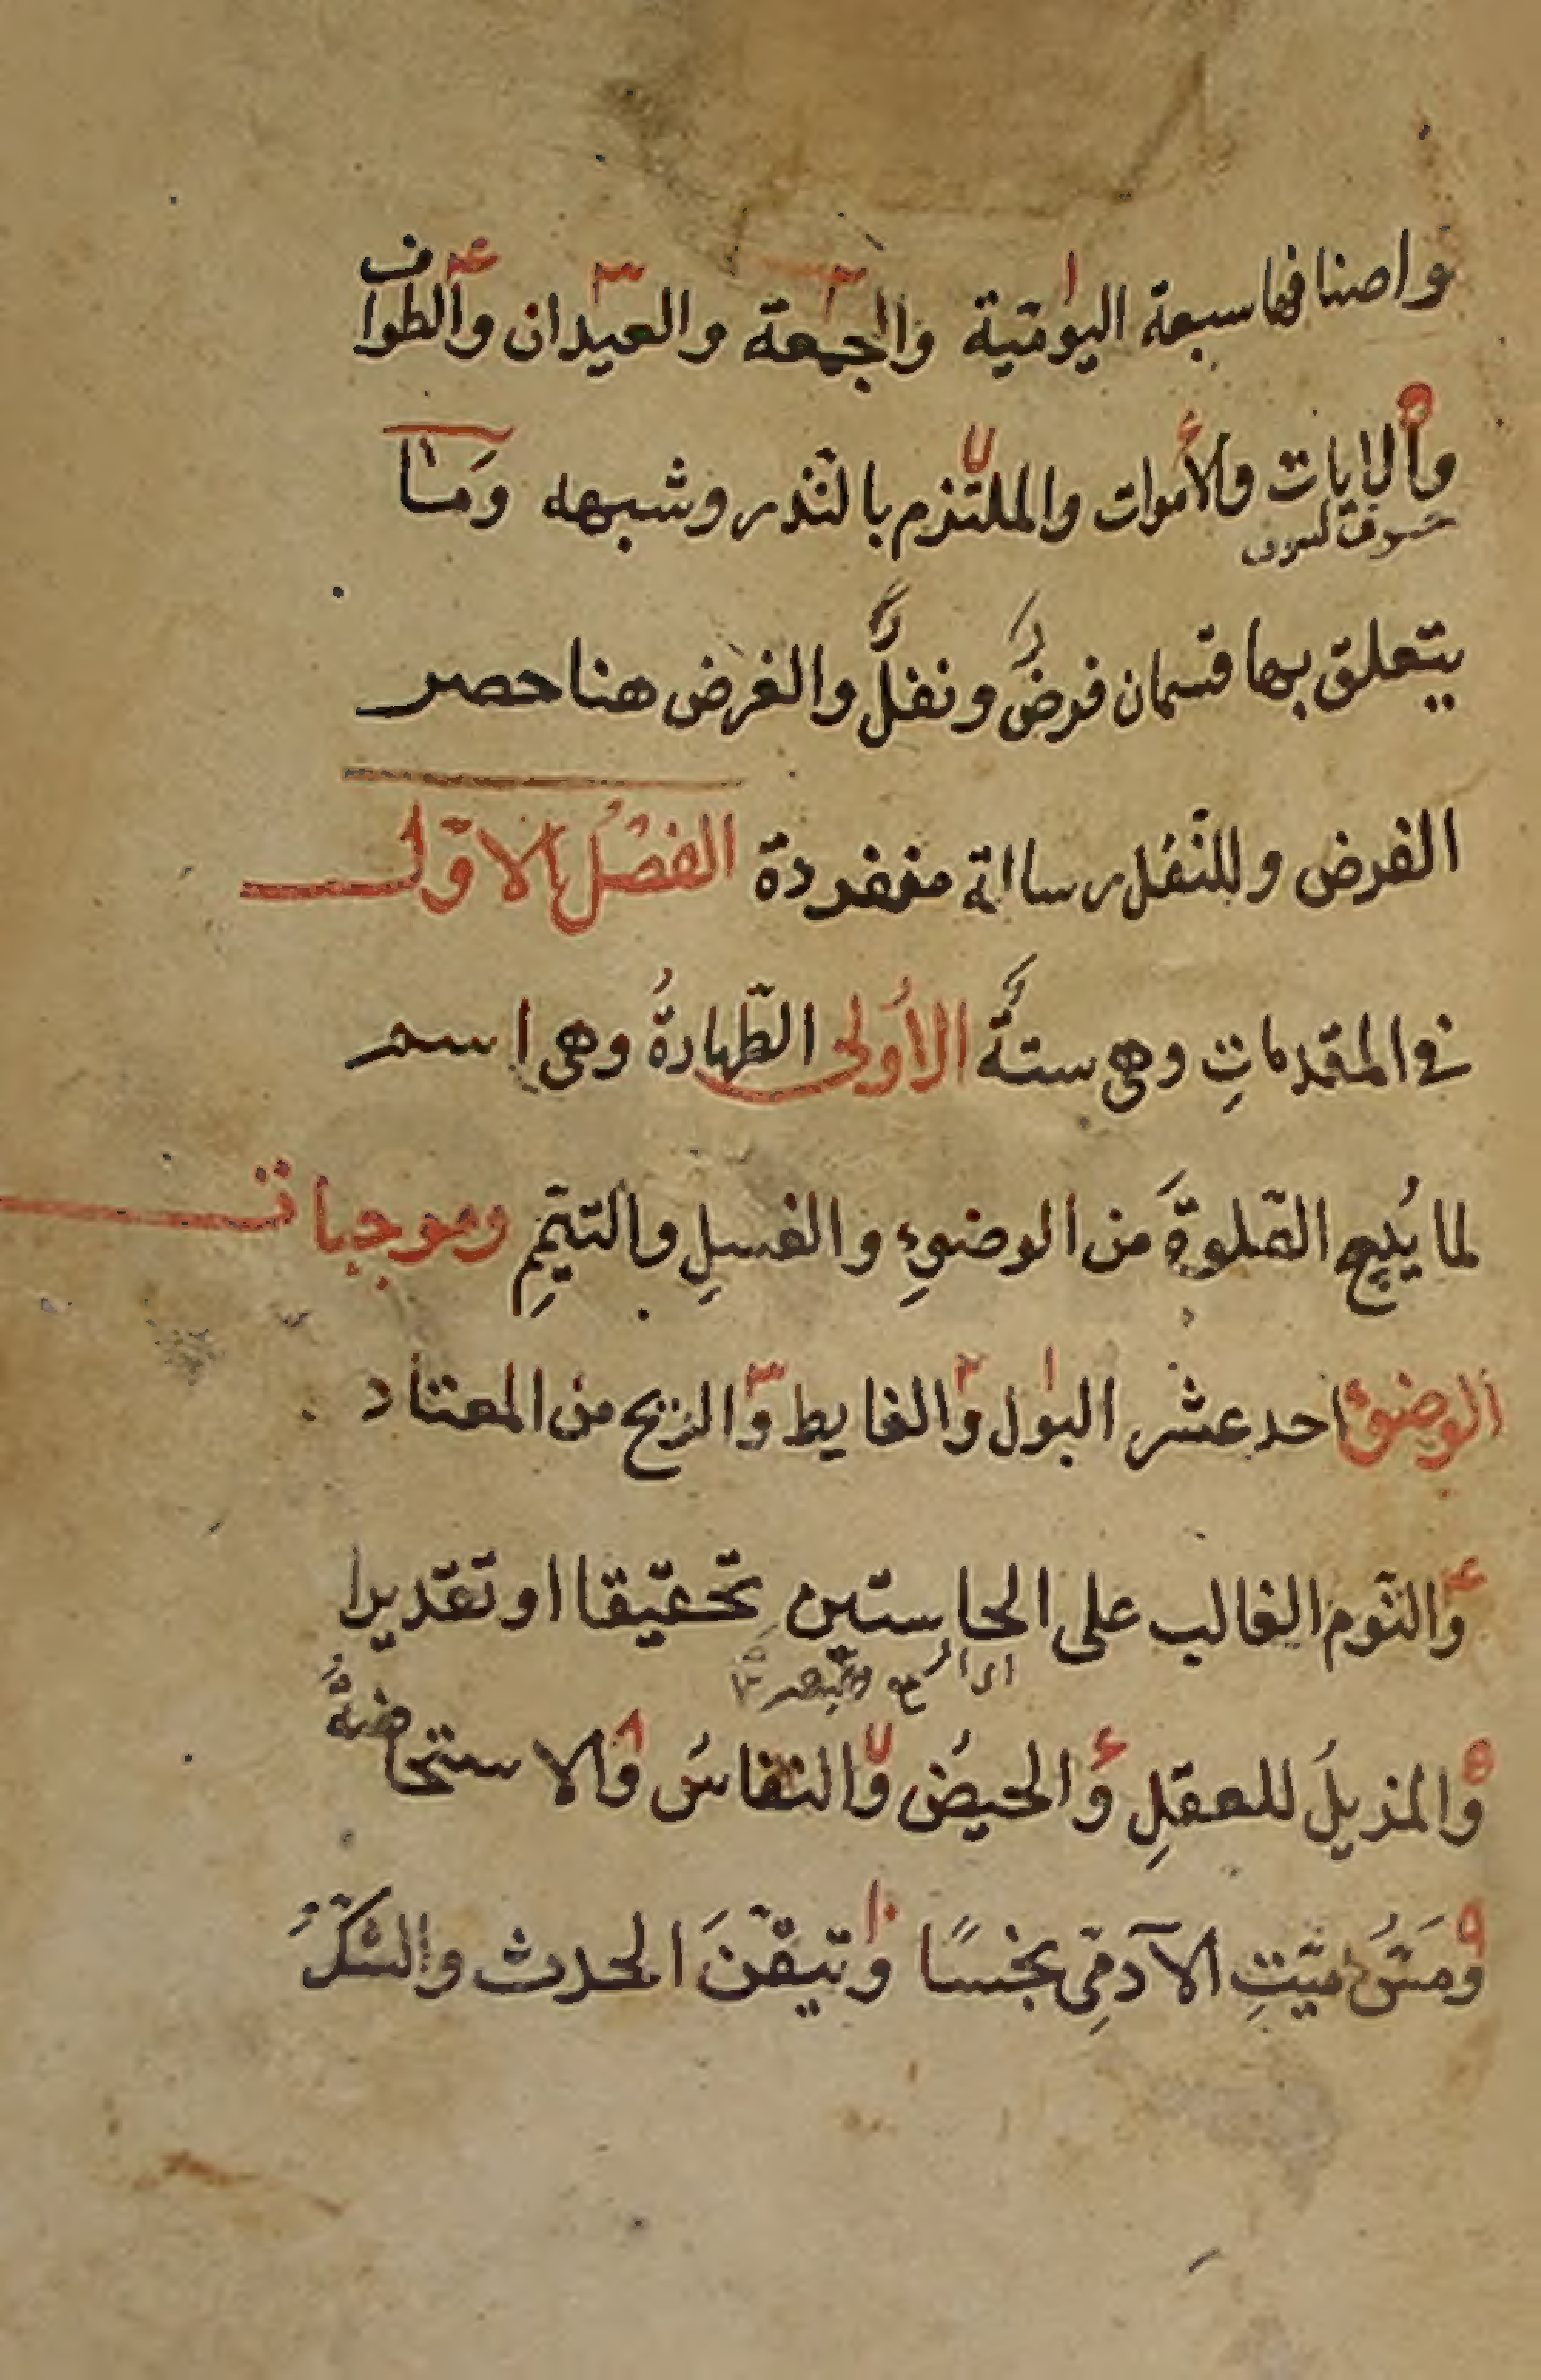 واصنافها سبعة اليومّية والجمعة والعيدان والطواف
والايات والأموات والملتزم بالنّذر وشبهه وَمٰا
خسوف كسوف
يتعلق بها قسمان فرضٌ ونفلٌ والغرض هنا حصر
الفرض وللنّفل رسالة منفردة الفصْلُ الاوّل
في المقدماتِ وهى ستةٌ الاُولى الطّهارةُ وهى اسم
لما يُبيح الصّلوةَ من الوضوءِ والغسلِ والتيمّمِ وموجبات
الوضوء احد عشر البول والغايط والريح من المعتاد
والنّوم الغالب على الحاستين تحقيقا او تقديرا
والمزيلُ للعقلِ والحيضُ والنفاسُ والاستحاضةُ
ومَسُّ ميّتِ الآدمّىِ نجسًا وتيقّنَ الحدث والشكُّ